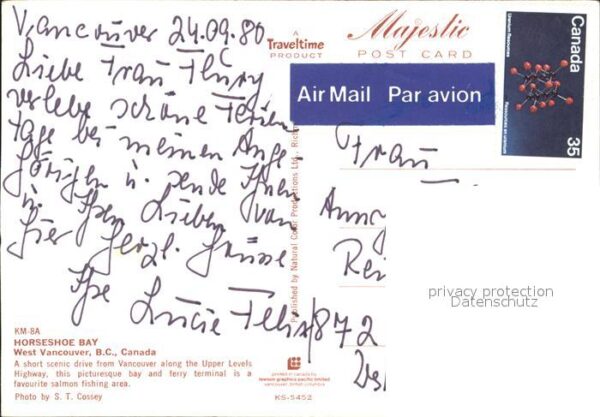 Vancouver 24.09.80
Liebe Frau Flury
verlebe schöne Ferien
tage bei meinen Ange
hörigen u. sende Ihnen
u. Ihren Lieben von
hier herzl. Grüsse
Ihre Lucie Felix
A
Traveltime
PRODUCT
Majestic
POST CARD
Air Mail Par avion
Canada
35
Uranium Resources
Ressources en uranium
Frau
Rei
872
Published by Natural Color Productions Ltd., Rich
privacy protection
Datenschutz
KM-8A
HORSESHOE BAY
West Vancouver, B.C., Canada
A short scenic drive from Vancouver along the Upper Levels
Highway, this picturesque bay and ferry terminal is a
favourite salmon fishing area.
Photo by S. T. Cossey
printed in canada by
lawson graphics pacific limited
vancouver, british columbia
KS-5452